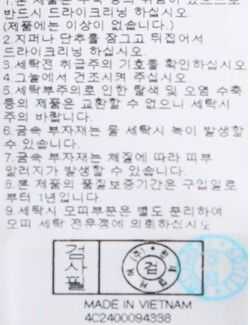 반드시 드라이크리닝 하십시오.
(제품에는 이상이 없습니다.)
2.지퍼나 단추를 잠그고 뒤집어서
드라이크리닝 하십시오.
3.세탁전 취급주의 기호를 확인하십시오
4.그늘에서 건조시켜 주십시오
5.세탁부주의로 인한 탈색 및 오염 수축
등의 제품은 교환할 수 없으니 세탁시
주의 바랍니다.
6.금속 부자재는 물 세탁시 녹이 발생할
수 있습니다.
7.금속 부자재는 체질에 따라 피부
알러지가 발생할 수 있습니다.
8.본 제품의 품질보증기간은 구입일로
부터 1년입니다.
9.세탁시 모피부분은 별도 분리하여
모피 세탁 전문점에 의뢰하십시오
검사필
검
MADE IN VIETNAM
4C2400094338